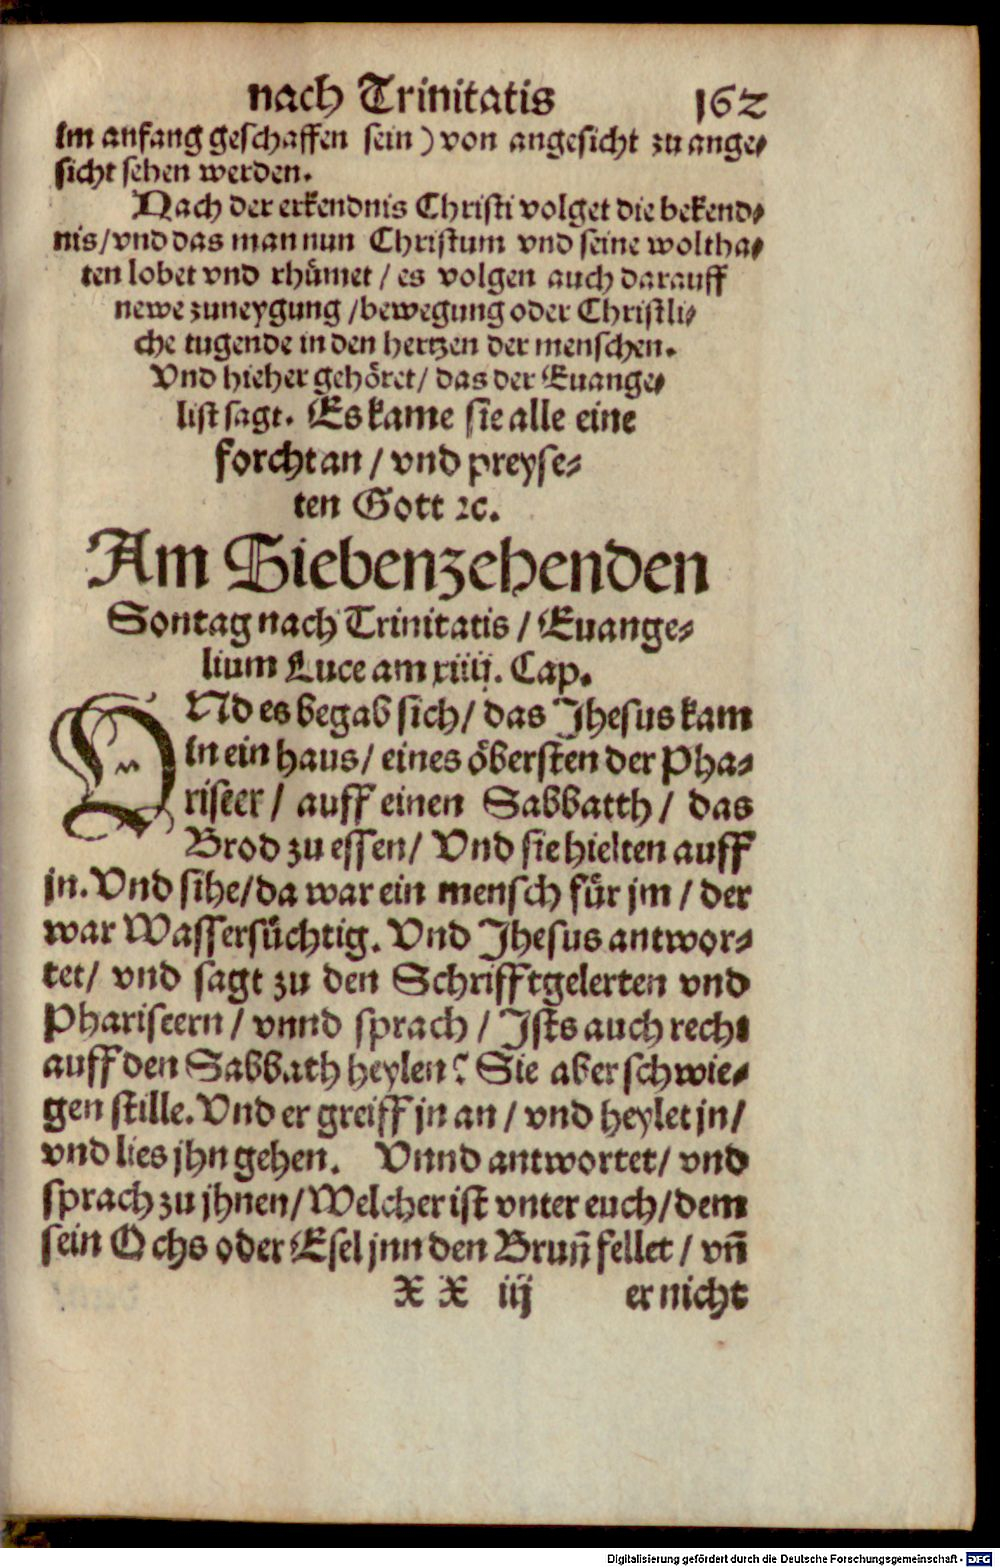 nach Trinitatis 162
im anfang geschaffen sein) von angesicht zu ange⸗
sicht sehen werden.
Nach der erkendnis Christi volget die bekend⸗
nis/ vnd das man nun Christum vnd seine woltha⸗
ten lobet vnd rhümet/ es volgen auch darauff
newe zuneygung/ bewegung oder Christli⸗
che tugende in den hertzen der menschen.
Vnd hieher gehöret/ das der Euange⸗
list sagt. Es kame sie alle eine
forcht an/ vnd preyse⸗
ten Gott ꝛc.
Am Siebenzehenden
Sontag nach Trinitatis/ Euange⸗
lium Luce am xiiij. Cap.
VNd es begab sich/ das Jhesus kam
in ein haus/ eines öbersten der Pha⸗
riseer/ auff einen Sabbatth/ das
Brod zu essen/ Vnd sie hielten auff
jn. Vnd sihe/ da war ein mensch für jm/ der
war Wassersüchtig. Vnd Jhesus antwor⸗
tet/ vnd sagt zu den Schrifftgelerten vnd
Phariseern/ vnnd sprach/ Jsts auch recht
auff den Sabbath heylen? Sie aber schwie⸗
gen stille. Vnd er greiff jn an/ vnd heylet jn/
vnd lies jhn gehen. Vnnd antwortet/ vnd
sprach zu jhnen/ Welcher ist vnter euch/ dem
sein Ochs oder Esel jnn den Brun̄ fellet/ vn̄
X X iij er nicht
Digitalisierung gefördert durch die Deutsche Forschungsgemeinschaft - DFG